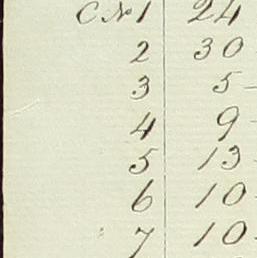 C No 1 24
2 30
3 5
4 9
5 13
6 10
7 10